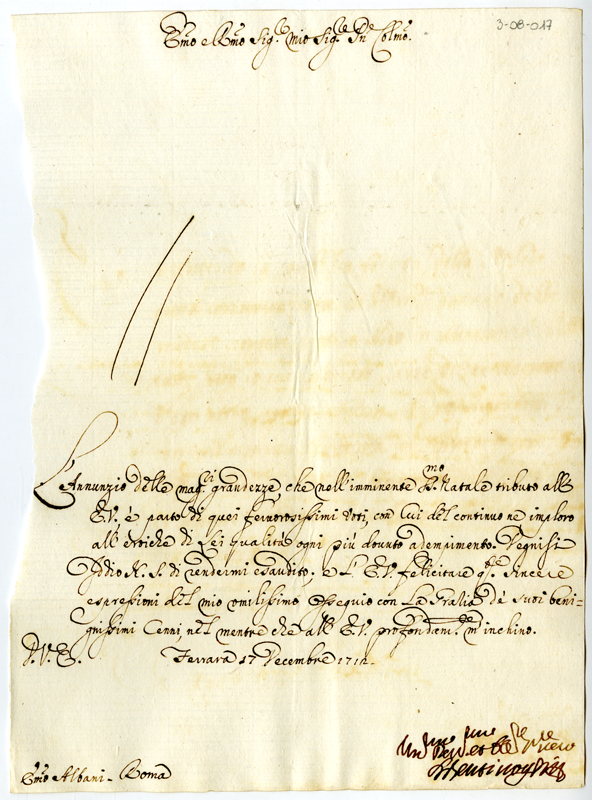 3-08-017
Emo e Rmo Sig.re mio Sig.re Pne Colmo.
L'Annunzio delle mag.ri grandezze che nell'imminente S.mo Natale tributo all'
E.V. è parto di quei fervorosissimi voti, con cui del continuo ne imploro
all' eroiche di Lei qualità ogni più dovuto adempimento. Degnisi
Iddio N. S. di rendermi esaudito, e L'E.V. felicitare q.ste sincere
espressioni del mio umilissimo ossequio con La Grazia de suoi beni-
gnissimi Cenni nel mentre che all' E.V. profondam.te m'inchino.
D.V.E. Ferrara 17 Decembre 1712.
Emo Albani - Roma